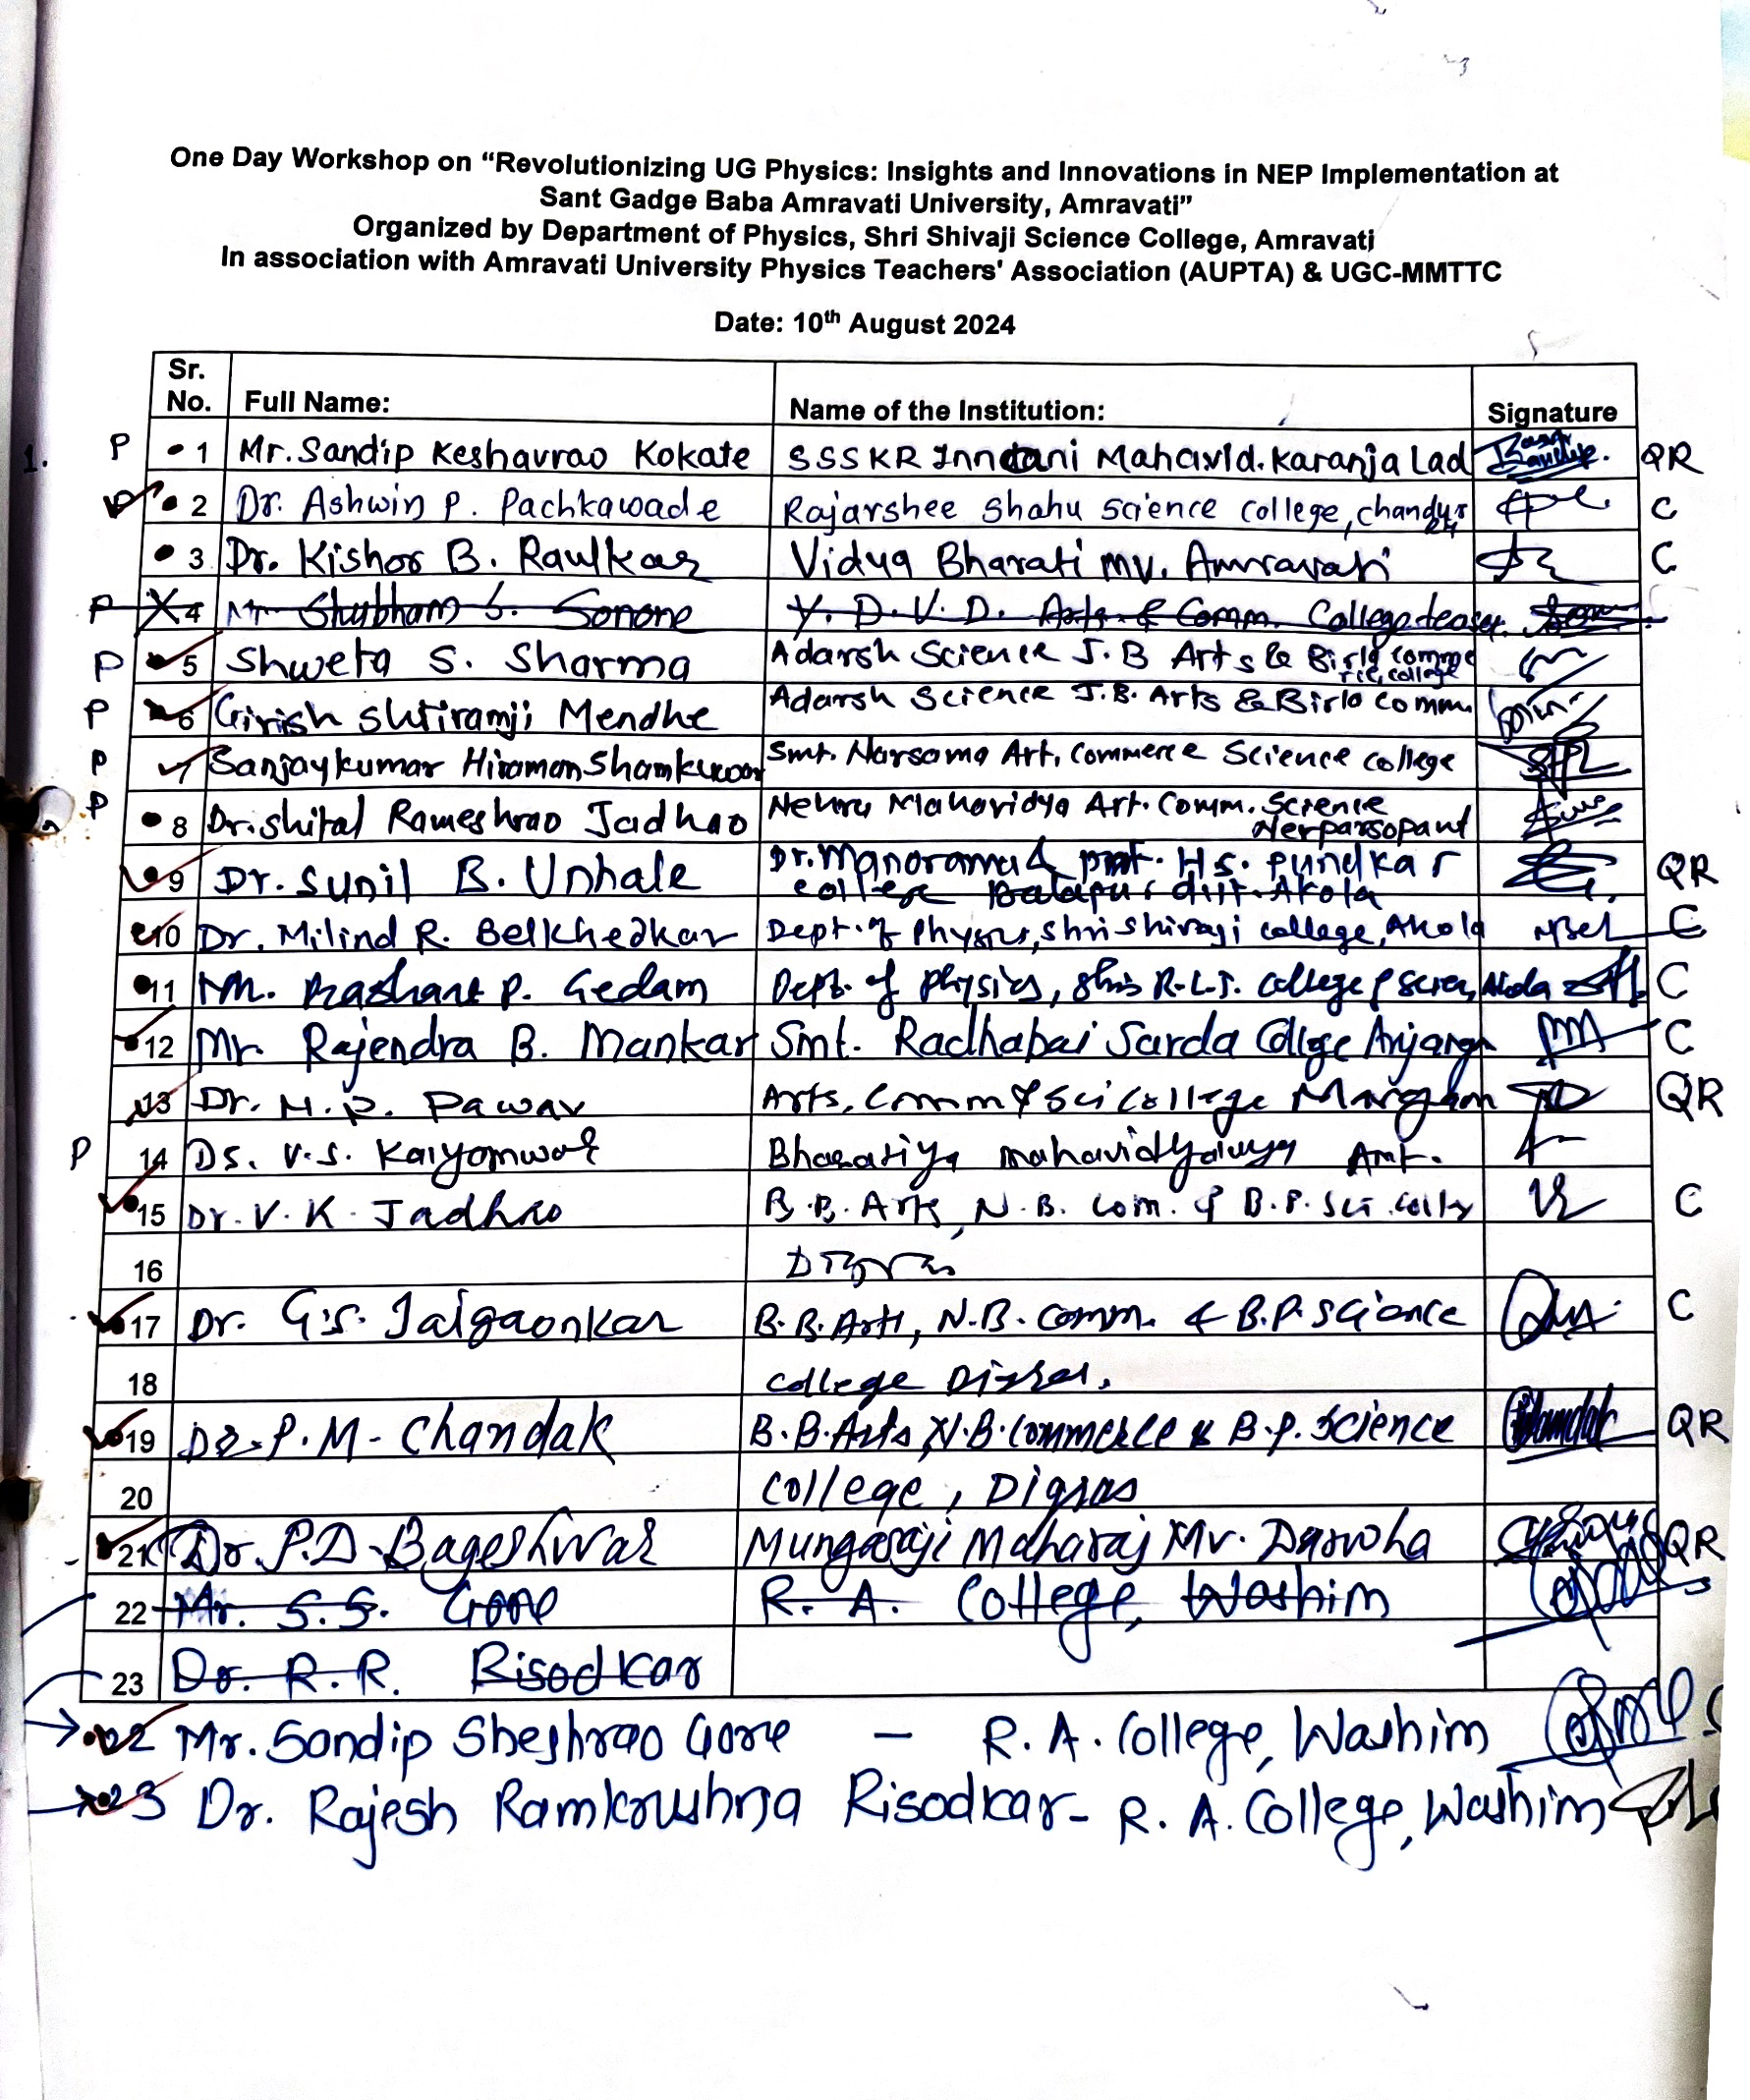 One Day Workshop on “Revolutionizing UG Physics: Insights and Innovations in NEP Implementation at
Sant Gadge Baba Amravati University, Amravati”
Organized by Department of Physics, Shri Shivaji Science College, Amravati
In association with Amravati University Physics Teachers' Association (AUPTA) & UGC-MMTTC
Date: 10th August 2024
Sr. No. Full Name: Name of the Institution: Signature
1. P 1 Mr. Sandip Keshavrao Kokate SSSKR Innani Mahavid. Karanja Lad QR
P 2 Dr. Ashwin P. Pachkawade Rajarshee Shahu Science College, C
3 Dr. Kishor B. Raulkar Vidya Bharati mv. Amravati C
P X 4 Mr Shubham S. Sonone Y. D. V. D. Arts & Comm. College
P 5 Shweta S. Sharma Adarsh Science J.B Arts & Birla Commerce College
P 6 Girish Shriramji Mendhe Adarsh Science J.B. Arts & Birla Comm.
P 7 Sanjaykumar Hiraman Smt. Narsamma Art, Commerce Science college
P 8 Dr. Shital Rameshrao Jadhao Nehru Mahavidya Art. Comm. Science
Nerparsopant
9 Dr. Sunil B. Unhale Dr. Manorama & H.S. Pundkar QR
college Balapur Akola
10 Dr. Milind R. Belkhedkar Dept. of Physics, Shri Shivaji College, Akola C
11 Mr. Prashant P. Gedam Dept. of Physics, Shri R.L.T. College of Scien, Akola C
12 Mr. Rajendra B. Mankar Smt. Radhabai Sarda College C
13 Dr. H. P. Pawar Arts, Comm & Sci College QR
P 14 Dr. V.S. Bharatiya mahavidyalaya Amt.
15 Dr. V. K. Jadhao B.B. Arts, N.B. Com. & B.P. Sci. C
16
17 Dr. G.S. Jalgaonkar B.B. Arts, N.B. Comm. & B.P. Science C
18 College Digras.
19 Dr. P. M. Chandak B.B. Arts, N.B. Commerce & B.P. Science QR
20 College, Digras
21 Dr. P. D. Bageshwar Mungasaji Maharaj Mv. Darwha QR
22 Mr. S. S. Gore R. A. College, Washim
23 Dr. R. R. Risodkar
22 Mr. Sandip Sheshrao Gore – R. A. College, Washim
23 Dr. Rajesh Ramkrushna Risodkar – R. A. College, Washim